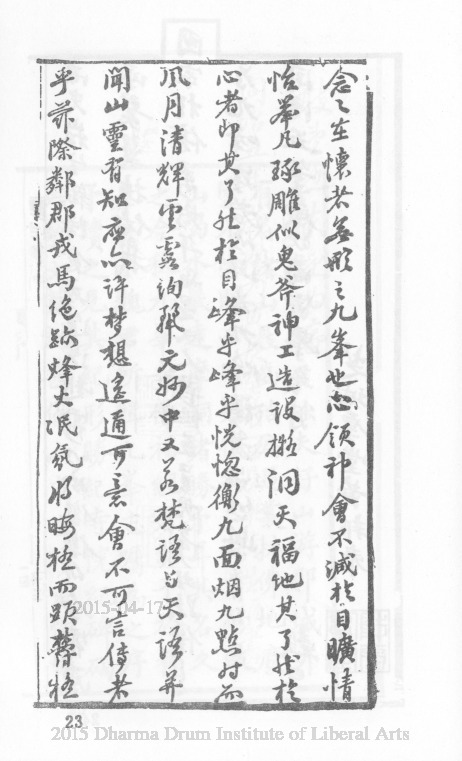 念々在懷者無形之九峯也心領神會不減於目曠情
怡峯凡琢雕似鬼斧神工造設擬洞天福地其了然於
心者即其了然於目峰乎峰乎恍惚衡九面烟九點时而
風月清輝雲霧詢解元妙中又若梵語与天語并
聞山靈有知應亦許梦想遙通可意會不可言傳者
乎茲際鄰郡戎馬絶跡烽火氓氛将晦極而顕
23
2015-04-17
2015 Dharma Drum Institute of Liberal Arts